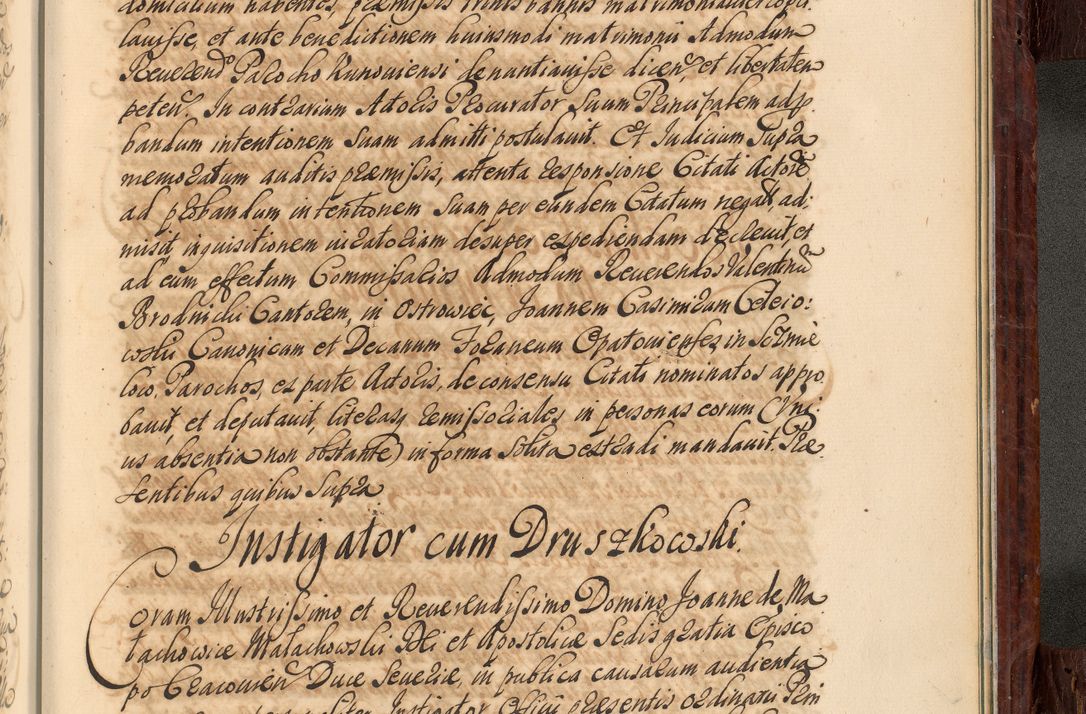 domicilium habentes, præmissis trinis bannis matrimonialiter copu
lauisse, et ante benedictionem huiusmodi matrimonii Admodum
Reuerend Parocho Kunouiensi denuntiauisse dicen et libertatem
peten. In contrarium Actoris Procurator Suum Principalem ad p
bandum intentionem suam admitti postulauit. Et Iudicium supra
memoratum auditis præmissis, attenta responsione Citati Actorē
ad probandum intentionem suam per eundem Citatum negat ad:
misit, inquisitionem iuratoriam desuper expediendam decleuit, et
ad eum effectum Commissarios Admodum Reuerendos Valentinū
Brodnicki Cantorem, in Ostrowiec, Joannem Casimirum Cdeio:
wski Canonicum et Decanum Foraneum Opatouiensẽ, in Szmie
loco, Parochos, ex parte Actoris, de consensu Citati nominatos appro
bauit, et deputauit, literasq remissoriales in personas eorum (Vni:
us absentia non obstante) in forma solita extradi mandauit. Præ
sentibus quibus supra
Instigator cum Druszkowski.
Coram Illustrissimo et Reuerendissimo Domino Joanne de Ma
lachowice Malachowski Dei et Apostolicæ Sedis gratia Episco
po Cracouien Duce Seueriæ, in publica causarum audientia
Instigator Officii præsentis ordinarii Prin